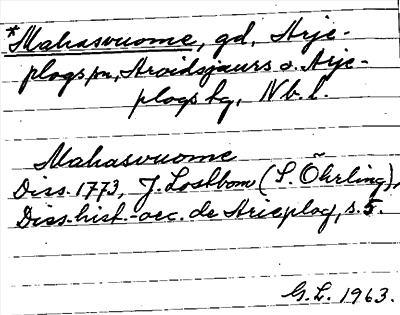 *Mahasvuome, gd, Arje-
plogs sn, Arvidsjaurs o. Arje-
plogs tg, Nb. l.
Mahasvuome
Diss. 1773, J. Lostbom (S. Öhrling),
Diss. hist.-oec. de Arieplog, s. 5.
G. L. 1963.